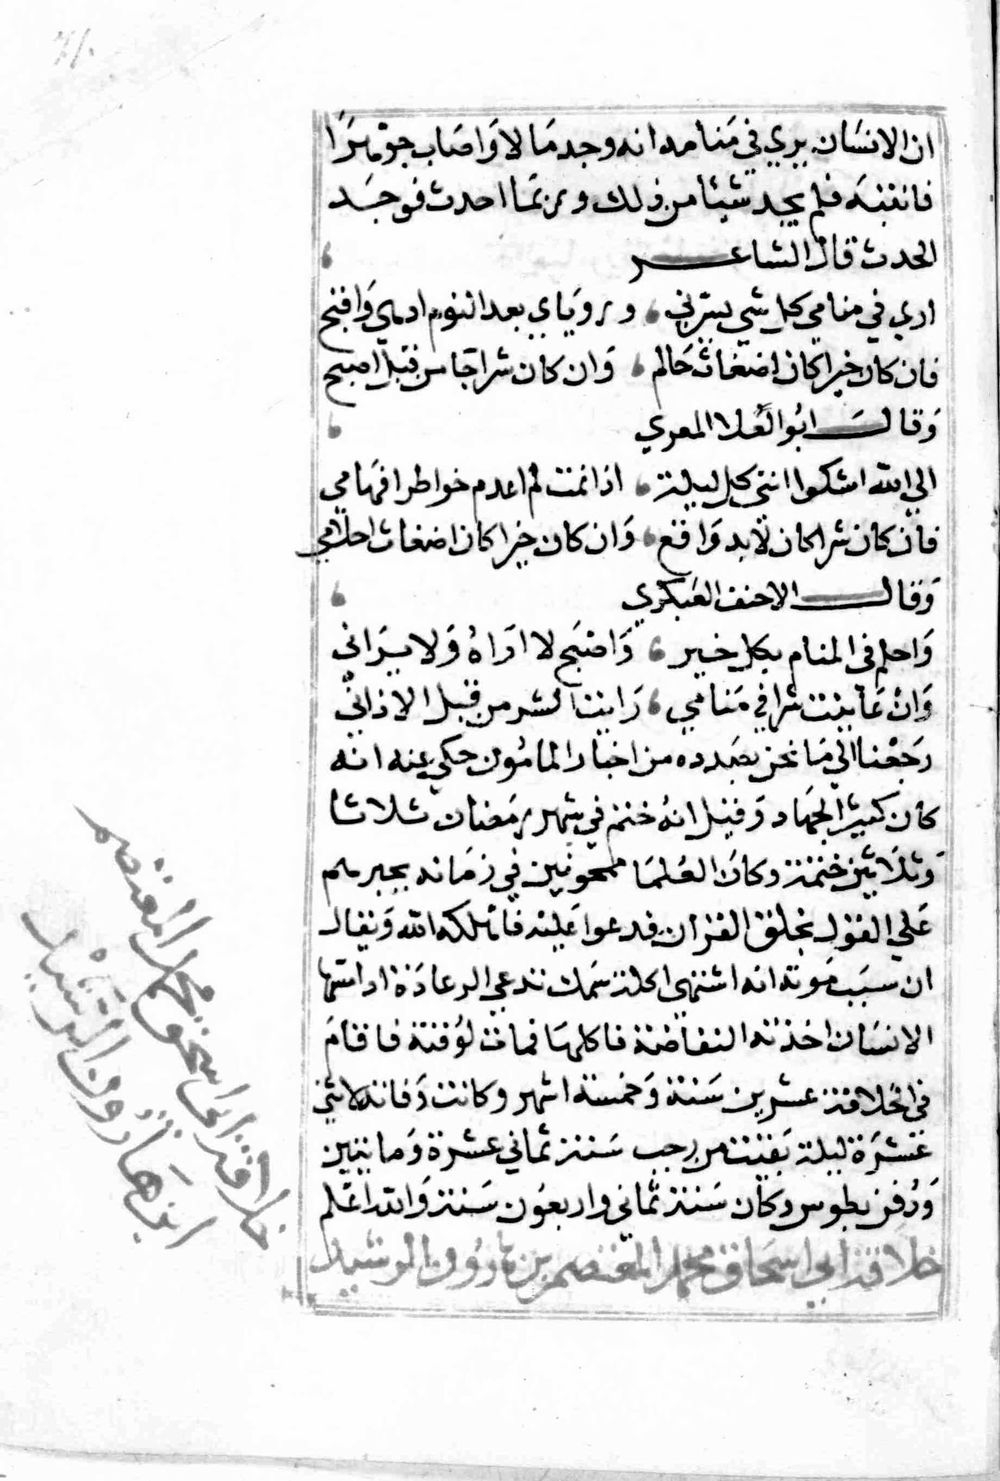 ان الانسان يري في منامه انه وجد مالا واصاب جوهرا
فانتبه فلم يجد شيئا من ذلك وربما احدث فوجد
الحدث قال الشاعر
اري في منامي كل شي يسرني ورؤياي بعد النوم ادهي واقبح
فان كان خيرا كان اضغاث حالم وان كان شرا جا من قبل اصبح
وقال ابو العلا المعري
الي الله اشكوا انني كل ليلة اذا نمت لم اعدم خواطر افهامي
فان كان شرا كان لابد واقع وان كان خيرا كان اضغاث احلامي
وقال الاحنف العبكري
واحلم في المنام بكل خير واصبح لا اراه ولا يراني
وان عاينت شرا في منامي رايت الشر من قبل الاذاني
رجعنا الي ما نحن بصدده من اخبار المامون حكي عنه انه
كان كثير الجهاد وقيل انه ختم في شهر رمضان ثلاثا
وثلاثين ختمة وكان العلما ممحونين في زمانه يجبرهم
علي القول بخلق القران فدعوا عليه فاهلكه الله ويقال
ان سبب موته انه اشتهي اكلة سمك تدعي الرعادة اذا مسها
الانسان اخذته النفاضة فاكلها فمات لوقته فاقام
في الخلافة عشرين سنة وخمسة اشهر وكانت وفاته لاثني
عشرة ليلة بقيت من رجب سنة ثماني عشرة ومايتين
ودفن بطوس وكان سنه ثماني واربعون سنة والله اعلم
خلافة ابي اسحاق محمد المعتصم بن هارون الرشيد
خلافة ابي اسحق محمد المعتصم
ابن هارون الرشيد